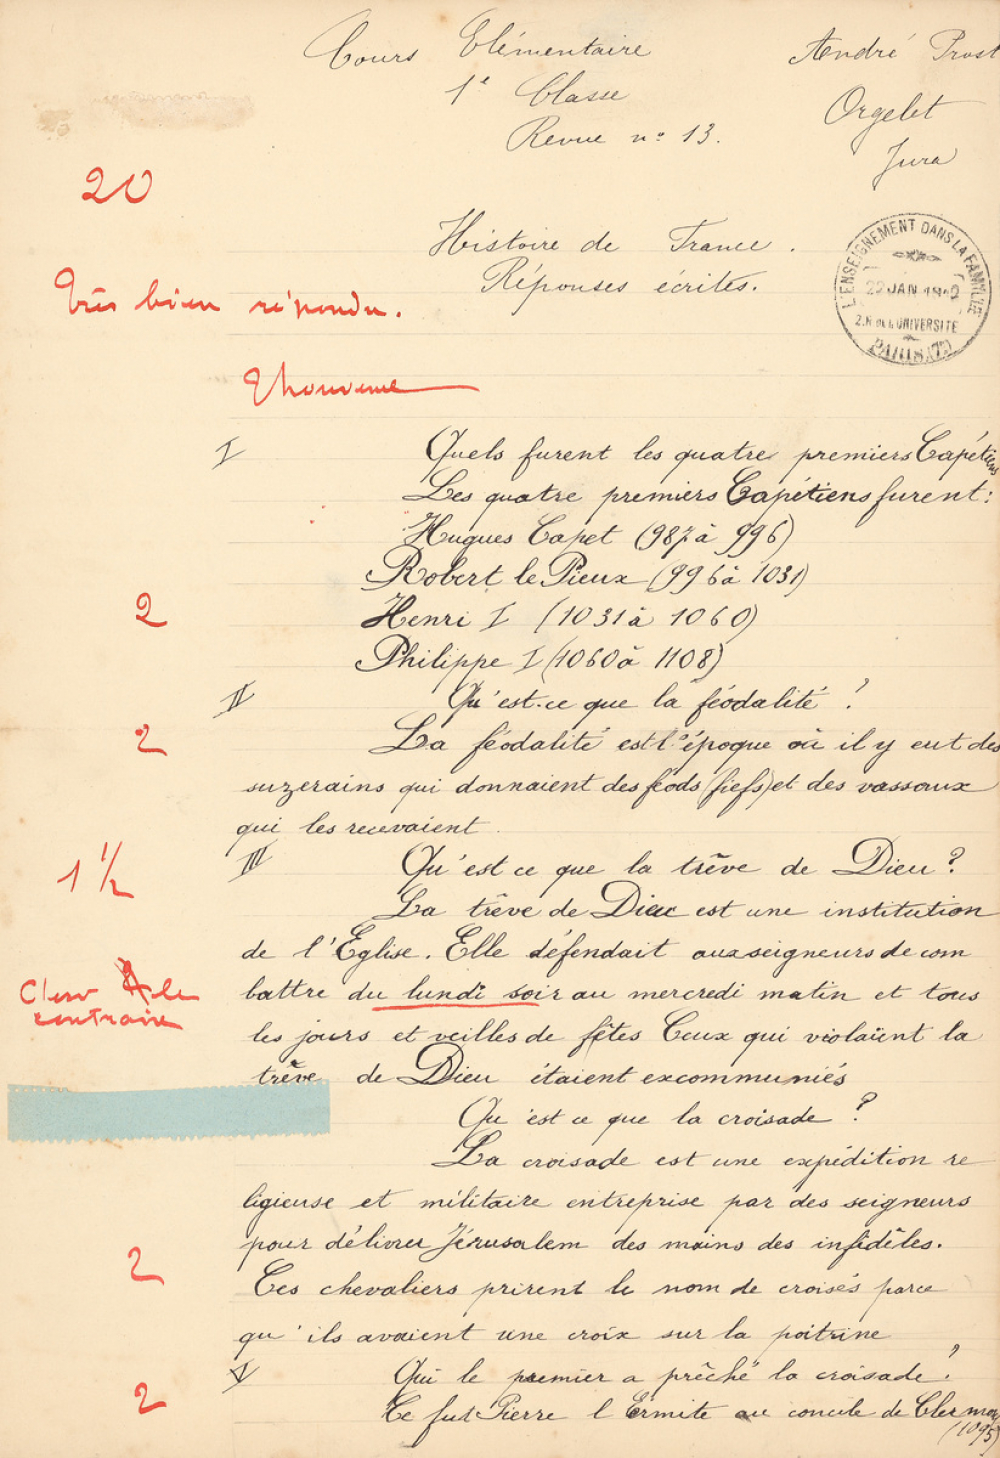 Cours Elémentaire
André Prost
1e Classe
Orgelet
Revue no 13.
Jura
20
Histoire de France.
Réponses écrites.
L'ENSEIGNEMENT DANS LA FAMILLE
22 JAN
2. R DE L'UNIVERSITÉ
PARIS
Très bien répondu.
I
Quels furent les quatre premiers Capétiens
Les quatre premiers Capétiens furent:
Hugues Capet (987 à 996)
Robert le Pieux (996 à 1031)
2
Henri I (1031 à 1060)
Philippe I (1060 à 1108)
II
Qu'est-ce que la féodalité ?
2
La féodalité est l'époque où il y eut des
suzerains qui donnaient des féods (fiefs) et des vassaux
qui les recevaient
III
Qu'est ce que la trêve de Dieu ?
1 1/2
La trêve de Dieu est une institution
de l'Eglise. Elle défendait aux seigneurs de com
battre du lundi soir au mercredi matin et tous
le
contraire
les jours et veilles de fêtes Ceux qui violaient la
trêve de Dieu étaient excommuniés
Qu'est ce que la croisade ?
La croisade est une expédition re
ligieuse et militaire entreprise par des seigneurs
pour délivrer Jérusalem des mains des infidèles.
2
Ces chevaliers prirent le nom de croisés parce
qu'ils avaient une croix sur la poitrine
V
Qui le premier a prêché la croisade ?
2
Ce fut Pierre l'Ermite au concile de Clermont
(1095)